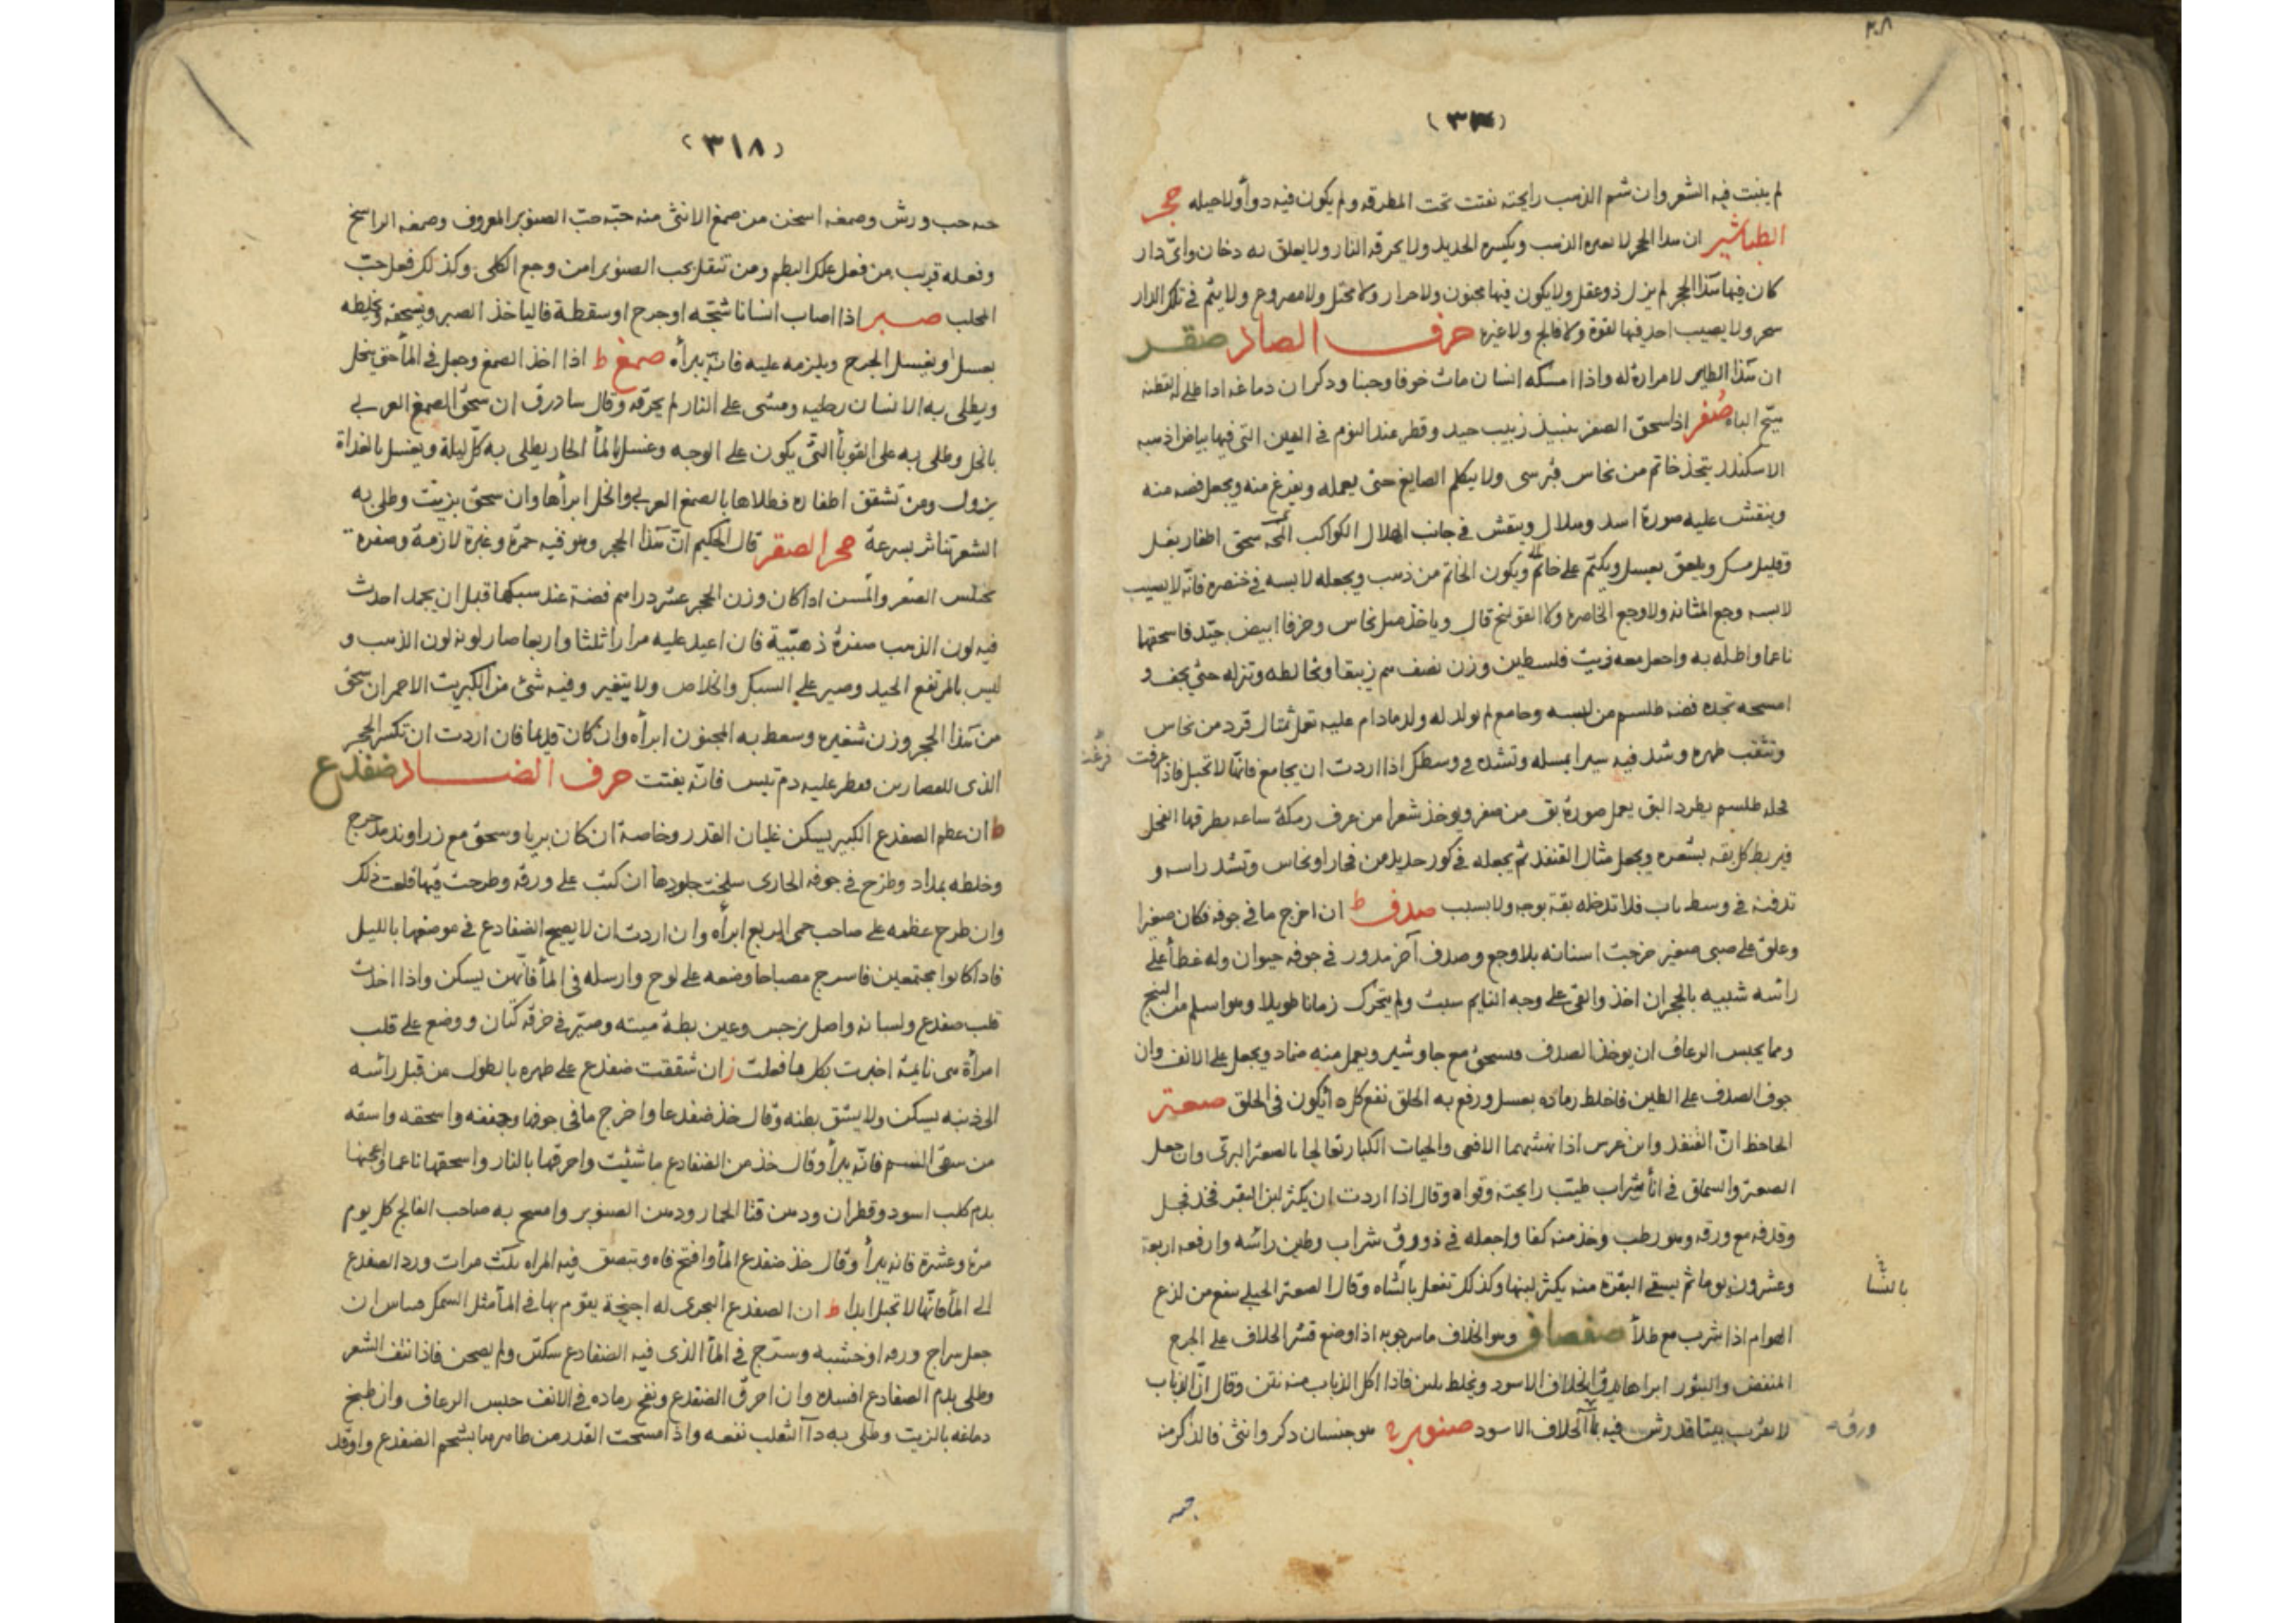 ٢٠٨
لم ينبت فيه الشعر وان شم الذهب رايحته تفتت تحت المطرقه ولم يكون فيه دوأ ولا حيله حجر
الطباشير ان هذا الحجر لا الذهب ويكسره الحديد ولا يحرقه النار ولا يعلق به دخان واىّ دار
كان فيها هذا الحجر لم يزل ذو عقل ولا يكون فيها مجنون ولا ولا مختل ولا مصروع ولا يتم فى تلك الدار
سحر ولا يصيب احد فيها لقوة ولا فالج ولا غيره حرف الصاد صقر
ان هذا الطاير لا مرارة له واذا امسكه انسان مات خوفا وجبنا وذكر ان دماغه اذا طلى
يهيّج الباه صُفر اذا سحق الصفر بنبيذ زبيب جيد وقطر عند النوم فى العين التى فيها بياض اذهبه
الاسكندر يتخذ خاتم من نحاس قبرسى ولا يكلم الصايغ حتى يعمله ويفرغ منه ويجعل فصه منه
وينقش عليه صورة اسد وهلال وينقش فى جانب الهلال الكواكب سحق اظفار بغل
وقليل مسك ويلعق بعسل ويكتم على خاتم ويكون الخاتم من ذهب ويجعله لابسه فى خنصره فانّه لا يصيب
لابسه وجع المثانه ولا وجع الخاصره ولا القولنج قال وياخذ نحاس وخزفا ابيض جيّد فاسحقها
ناعما واطله به واجعل معه زيت فلسطين وزن نصف زيبقا وتخالطه وتتركه حتى يجف و
امسحه تجده فضه طلسم من لبسه وجامع لم يولد له ولد مادام عليه تعمل تمثال قرد من نحاس
وتثقب ظهره وشد فيه سيرا وتشده فى وسطك اذا اردت ان يجامع فانّها لا تحبل فاذا فرغت
عرفت
حله طلسم يطرد البق يعمل صورة بق من صفر ويوخذ شعرا من عرف رمكة ساعه يطرقها الفحل
فيربط كل بقه بشعره ويجعل مثال القنفذ ثم يجعله فى كوز جديد من فخار او نحاس وتشد راسه و
تدفنه فى وسط باب فلا تدخله بقة بوجه ولا بسبب صدف ط ان اخرج ما فى جوفه فكان صغيرا
وعلق على صبى صغير خرجت اسنانه بلا وجع وصدف آخر مدور فى جوفه حيوان وله غطأ على
رأسه شبيه بالحجر ان اخذ والقى على وجه النايم سبت ولم يتحرك زمانا طويلا وهو اسلم من البنج
ومما يحبس الرعاف ان يوخذ الصدف ويسحق مع جاوشير ويعمل منه ضماد ويجعل على الانف وان
جوف الصدف على الطين فاخلط رماده بعسل ورفع به الحلق نفع كل يكون فى الحلق صعتر
الجاحظ انّ القنفذ وابن عرس اذا نهشهما الافعى والحيات الكبار تعالجا بالصعتر البرى وان جعل
الصعتر والسماق فى انأ شراب طيّب رايحته وقواه وقال اذا اردت ان يكثر لبن البقر فخذ فجل
وقد فه مع ورقه وهو رطب وخذ منه كفا واجعله فى ذورق شراب وطين رأسه وارفعه اربعة
وعشرون يوما ثم يسقى البقرة منه يكثر لبنها وكذلك تفعل بالشاه وقال الصعتر الجبلى ينفع من لذع
بالشا
الهوام اذا شرب مع طلأ صفصاف وهو الخلاف ماسرجويه اذا وضع قشر الخلاف على الجرح
المنتقض والبثور ابراها الخلاف الاسود ويخلط بلبن فاذا اكل الذباب منه نتن وقال انّ الذباب
لا تقرب بيتا قد رش فيه الخلاف الاسود صنوبر هو جنسان ذكر وانثى فالذكر منه
ورقه
(٣١٨)
حبه حب ورش وصمغه اسخن من صمغ الانثى منه حبّه حبّ الصنوبر المعروف وصمغه الراسخ
وفعله قريب من فعل علك البطم ومن تنقل بحب الصنوبر امن وجع الكلى وكذلك فعل حبّ
المحلب صبر اذا اصاب انسانا شجّه او جرح او سقطة فالياخذ الصبر ويسحقه ويخلطه
بعسل ويغسل الجرح ويلزمه عليه فانّه يبرأه صمغ ط اذا اخذ الصمغ وجعل فى المأ حتى ينحل
ويطلى به الانسان رجليه ومشى على النار لم يحرقه وقال سادرق ان سحق الصمغ العربى
بالخل وطلى به على القوبأ التى يكون على الوجه وغسل بالمأ الحار يطلى به كل ليلة ويغسل بالغداة
يزول ومن تشقق اظفاره فطلاها بالصمغ العربى والخل ابرأها وان سحق بزيت وطلى به
الشعر تناثر بسرعة حجر الصقر قال الحكيم انّ هذا الحجر وهو فيه حمرة وغبرة لازمة وصفره
الصفر والمسن اذا كان وزن الحجر عشر دراهم فضة عند سبكها قبل ان يجمد احدث
فيه لون الذهب صفرة ذهبيّة فان اعيد عليه مرارا ثلثا واربعا صار لونه لون الذهب و
ليس بالمرتفع الجيد وصبر على السبك والخلاص ولا يتغير وفيه شئ من الكبريت الاحمر ان سحق
من هذا الحجر وزن شعيره وسعط به المجنون ابرأه وان كان قديما فان اردت ان تكسر الحجر
الذى للعصارين فقطر عليه دم تيس فانّه يفتت حرف الضاد ضفدع
ط ان عظم الضفدع الكبير يسكن غليان القدر وخاصة ان كان بريا وسحق مع زراوند مدحرج
وخلطه بمداد وطرح فى جوفه الحارى سلخت جلودها ان كتب على ورقه وطرحت فيها قلعت ذلك
وان طرح عظمه على صاحب حمى الربع ابرأه وان اردت ان لا يصيح الضفادع فى موضعها بالليل
فاذا كانوا مجتمعين فاسرج مصباحا وضعه على لوح وارسله فى المأ فانهن يسكن واذا اخذت
قلب ضفدع ولسانه واصل نرجس وعين بطة ميته وصيّر فى خرقه كتان ووضع على قلب
امرأة هى نايمة اخبرت بكل ما فعلت ز ان شققت ضفدع على ظهره بالطول من قبل رأسه
الى ذنبه يسكن ولا يشق بطنه وقال خذ ضفدعا واخرج ما فى جوفها وجففه واسحقه واسقه
من سقى السم فانّه يبرأ وقال خذ من الضفادع ما شئت واحرقها بالنار واسحقها ناعما واعجنها
بدم كلب اسود وقطران ودهن قثا الحمار ودهن الصنوبر وامسح به صاحب الفالج كل يوم
مرّة وعشرة فانه يبرأ وقال خذ ضفدع المأ وافتح فاه وتبصق فيه المراه ثلث مرات ورد الضفدع
الى المأ فانّها لا تحبل ابدا ط ان الضفدع البحرى له اجنحة يقوم بها فى المأ مثل السمك ان
جعل سراج او خشبه وسرّج فى المأ الذى فيه الضفادع سكتن ولم يصحن فاذا نتف الشعر
وطلى بدم الضفادع افسده وان احرق الضفدع ونفخ رماده فى الانف حبس الرعاف وان طبخ
دماغه بالزيت وطلى به دآ الثعلب نفعه واذا مسحت القدر من ظاهرها بشحم الضفدع واوقد